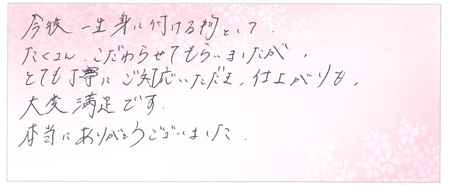 今後一生身に付ける物として、
たくさん、こだわらせてもらいましたが、
とても丁寧にご対応いただき、仕上がりも、
大変満足です。
本当にありがとうございました。